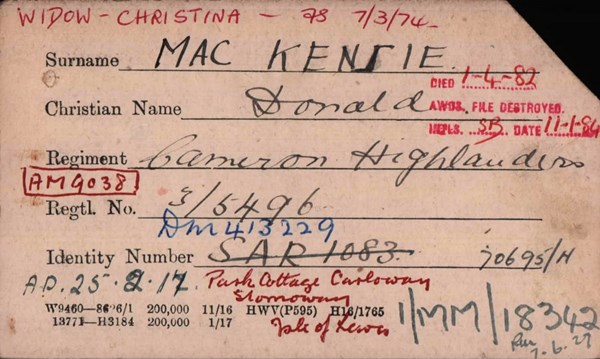 WIDOW - CHRISTINA - 78 7/3/74.
Surname MAC KENZIE.
DIED 1-4-82
Christian Name Donald
AWDS. FILE DESTROYED.
INTLS. SB. DATE 11-1-84
Regiment Cameron Highlanders
AM9038
Regtl. No. 3/5496
DM 413229
Identity Number SAR 1083. 70695/H
A.D. 25.2.17. Park Cottage Carloway
Stornoway
Isle of Lewis
W9460—8696/1 200,000 11/16 HWV(P595) H16/1765
13771—H3184 200,000 1/17
1/MM/18342
7.6.27